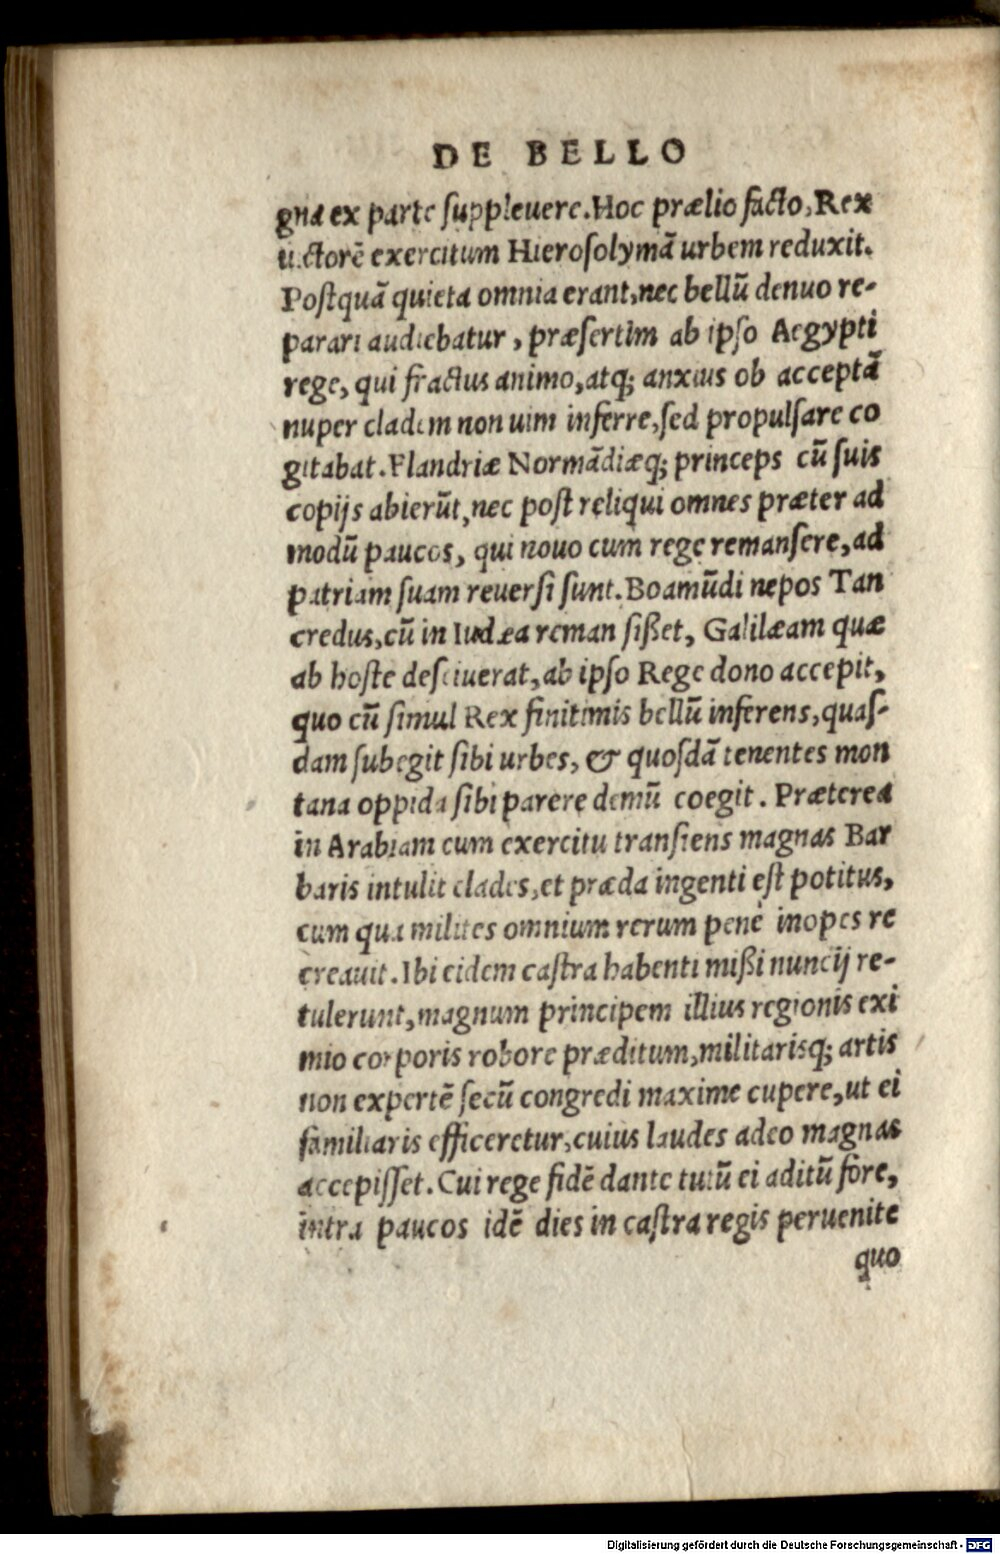 DE BELLO
gna ex parte ſuppleuere. Hoc prælio facto, Rex
uictorē exercitum Hieroſolymā urbem reduxit.
Poſtquā quieta omnia erant, nec bellū denuo re-
parari audiebatur, præſertim ab ipſo Aegypti
rege, qui fractus animo, atq; anxius ob acceptā
nuper cladem non uim inferre, ſed propulſare co
gitabat. Flandriæ Normādiæq; princeps cū ſuis
copijs abierūt, nec poſt reliqui omnes præter ad
modū paucos, qui nouo cum rege remanſere, ad
patriam ſuam reuerſi ſunt. Boamūdi nepos Tan
credus, cū in Iudæa reman ſißet, Galilæam quæ
ab hoſte deſciuerat, ab ipſo Rege dono accepit,
quo cū ſimul Rex finitimis bellū inferens, quaſ-
dam ſubegit ſibi urbes, & quoſdā tenentes mon
tana oppida ſibi parere demū coegit. Præterea
in Arabiam cum exercitu tranſiens magnas Bar
baris intulit clades, et præda ingenti eſt potitus,
cum qua milites omnium rerum penè inopes re
creauit. Ibi eidem caſtra habenti mißi nuncij re-
tulerunt, magnum principem illius regionis exi
mio corporis robore præditum, militarisq; artis
non expertē ſecū congredi maxime cupere, ut ei
familiaris efficeretur, cuius laudes adeo magnas
accepiſſet. Cui rege fidē dante tutū ei aditū fore,
intra paucos idē dies in caſtra regis peruenite
quo
Digitalisierung gefördert durch die Deutsche Forschungsgemeinschaft - DFG